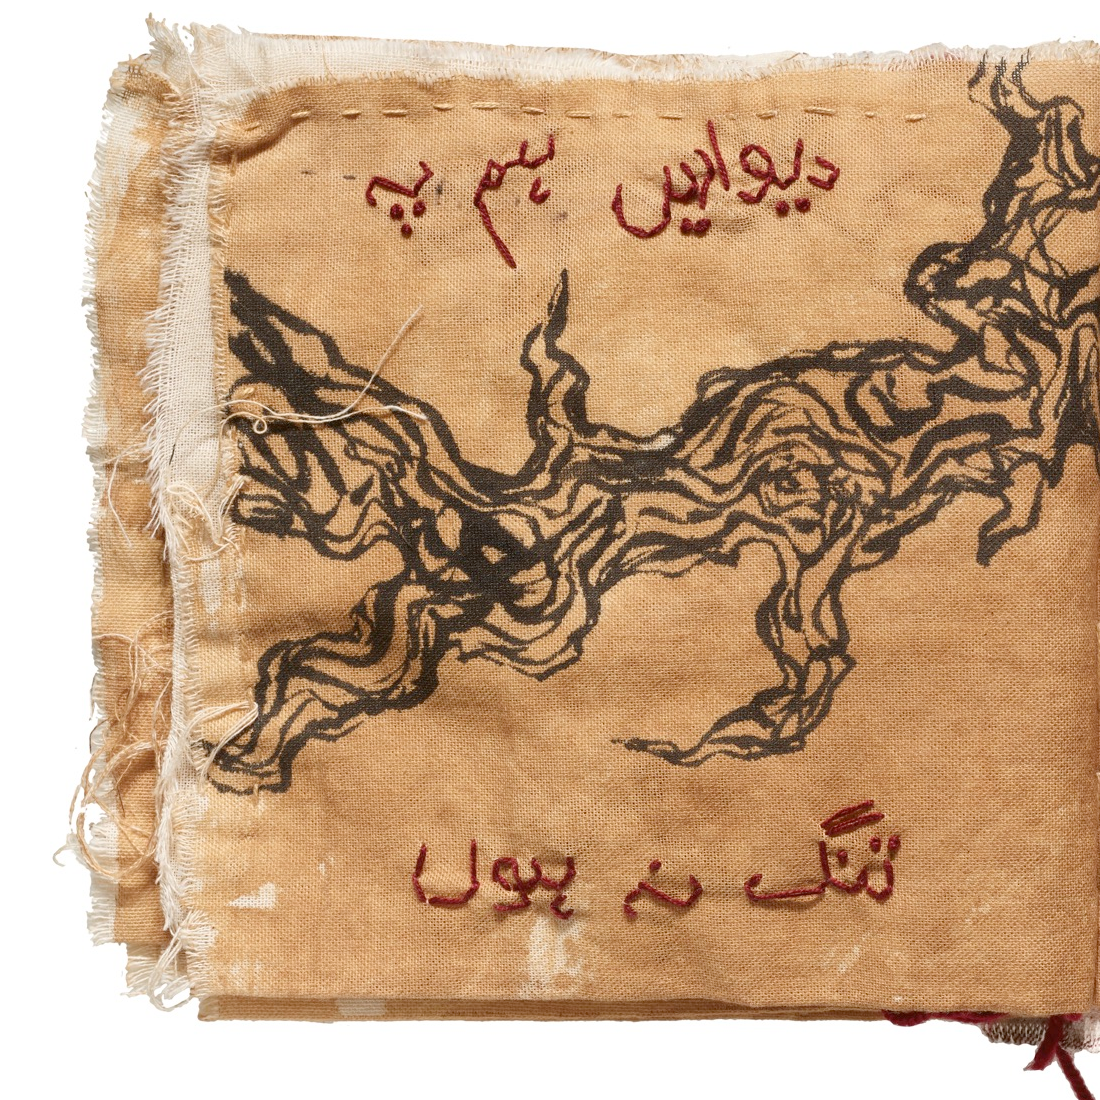 دیواریں ہم پہ
تنگ نہ ہوں